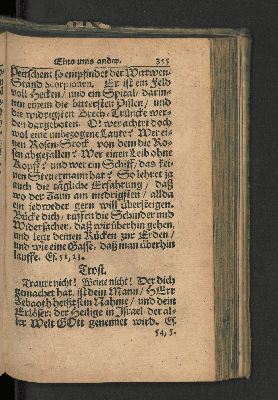 Eins ums ander. 355
Peitschen: so empfindet der Wittwen-
Stand Scorpionen. Er ist ein Feld
voll Hecken / und ein Spital / darin-
nen einem die bittersten Pillen / und
die widrigsten Brech-Träncke wer-
den dargeboten. O! wer achtet doch
wol eine unbezogene Laute? Wer ei-
nen Rosen-Stock / von dem die Ro-
sen abgefallen? Wer einen Leib ohne
Kopff? und wer ein Schiff / das kei-
nen Steuermann hat? So lehret ja
auch die tägliche Erfahrung / daß
wo der Zaun am niedrigsten / allda
ein jedweder gern will übersteigen.
Bücke dich / ruffen die Schinder und
Widersacher / daß wir überhin gehen /
und lege deinen Rücken zur Erden /
und wie eine Gasse / daß man überhin
lauffe. Es. 51, 23.
Trost.
Traure nicht! Weine nicht! Der dich
gemachet hat, ist dein Mann / HErr
Zebaoth heißt sein Nahme / und dein
Erlöser, der Heilige in Israel, der al-
ler Welt GOtt genennet wird. Es.
54, 5.